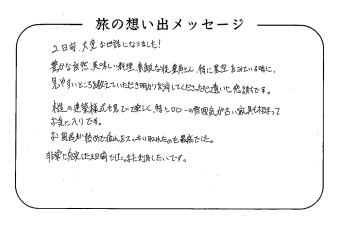 旅の想い出メッセージ
2日間、大変お世話になりました!
豊かな自然、美味しい料理、素敵な従業員さん、特に星空をみている時に、
見やすいところを教えていただき明かりを消してくださった心遣いに感謝です。
木造の建築様式も見ていて楽しく、特にロビーの雰囲気が古い家具と相まって
お気に入りです。
お風呂が熱めで疲れをスッキリ取れたのも最高でした。
非常に充実した2日間でした。また利用したいです。